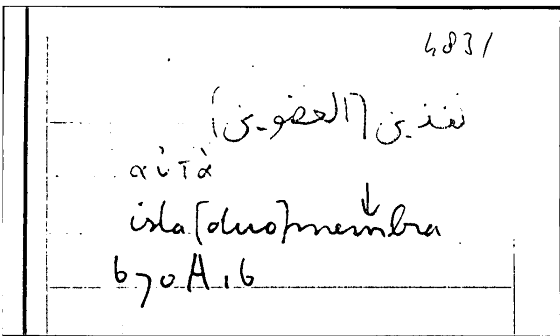 4831
هذين [العضوين]
αὐτὰ
ista [duo] membra
670A16